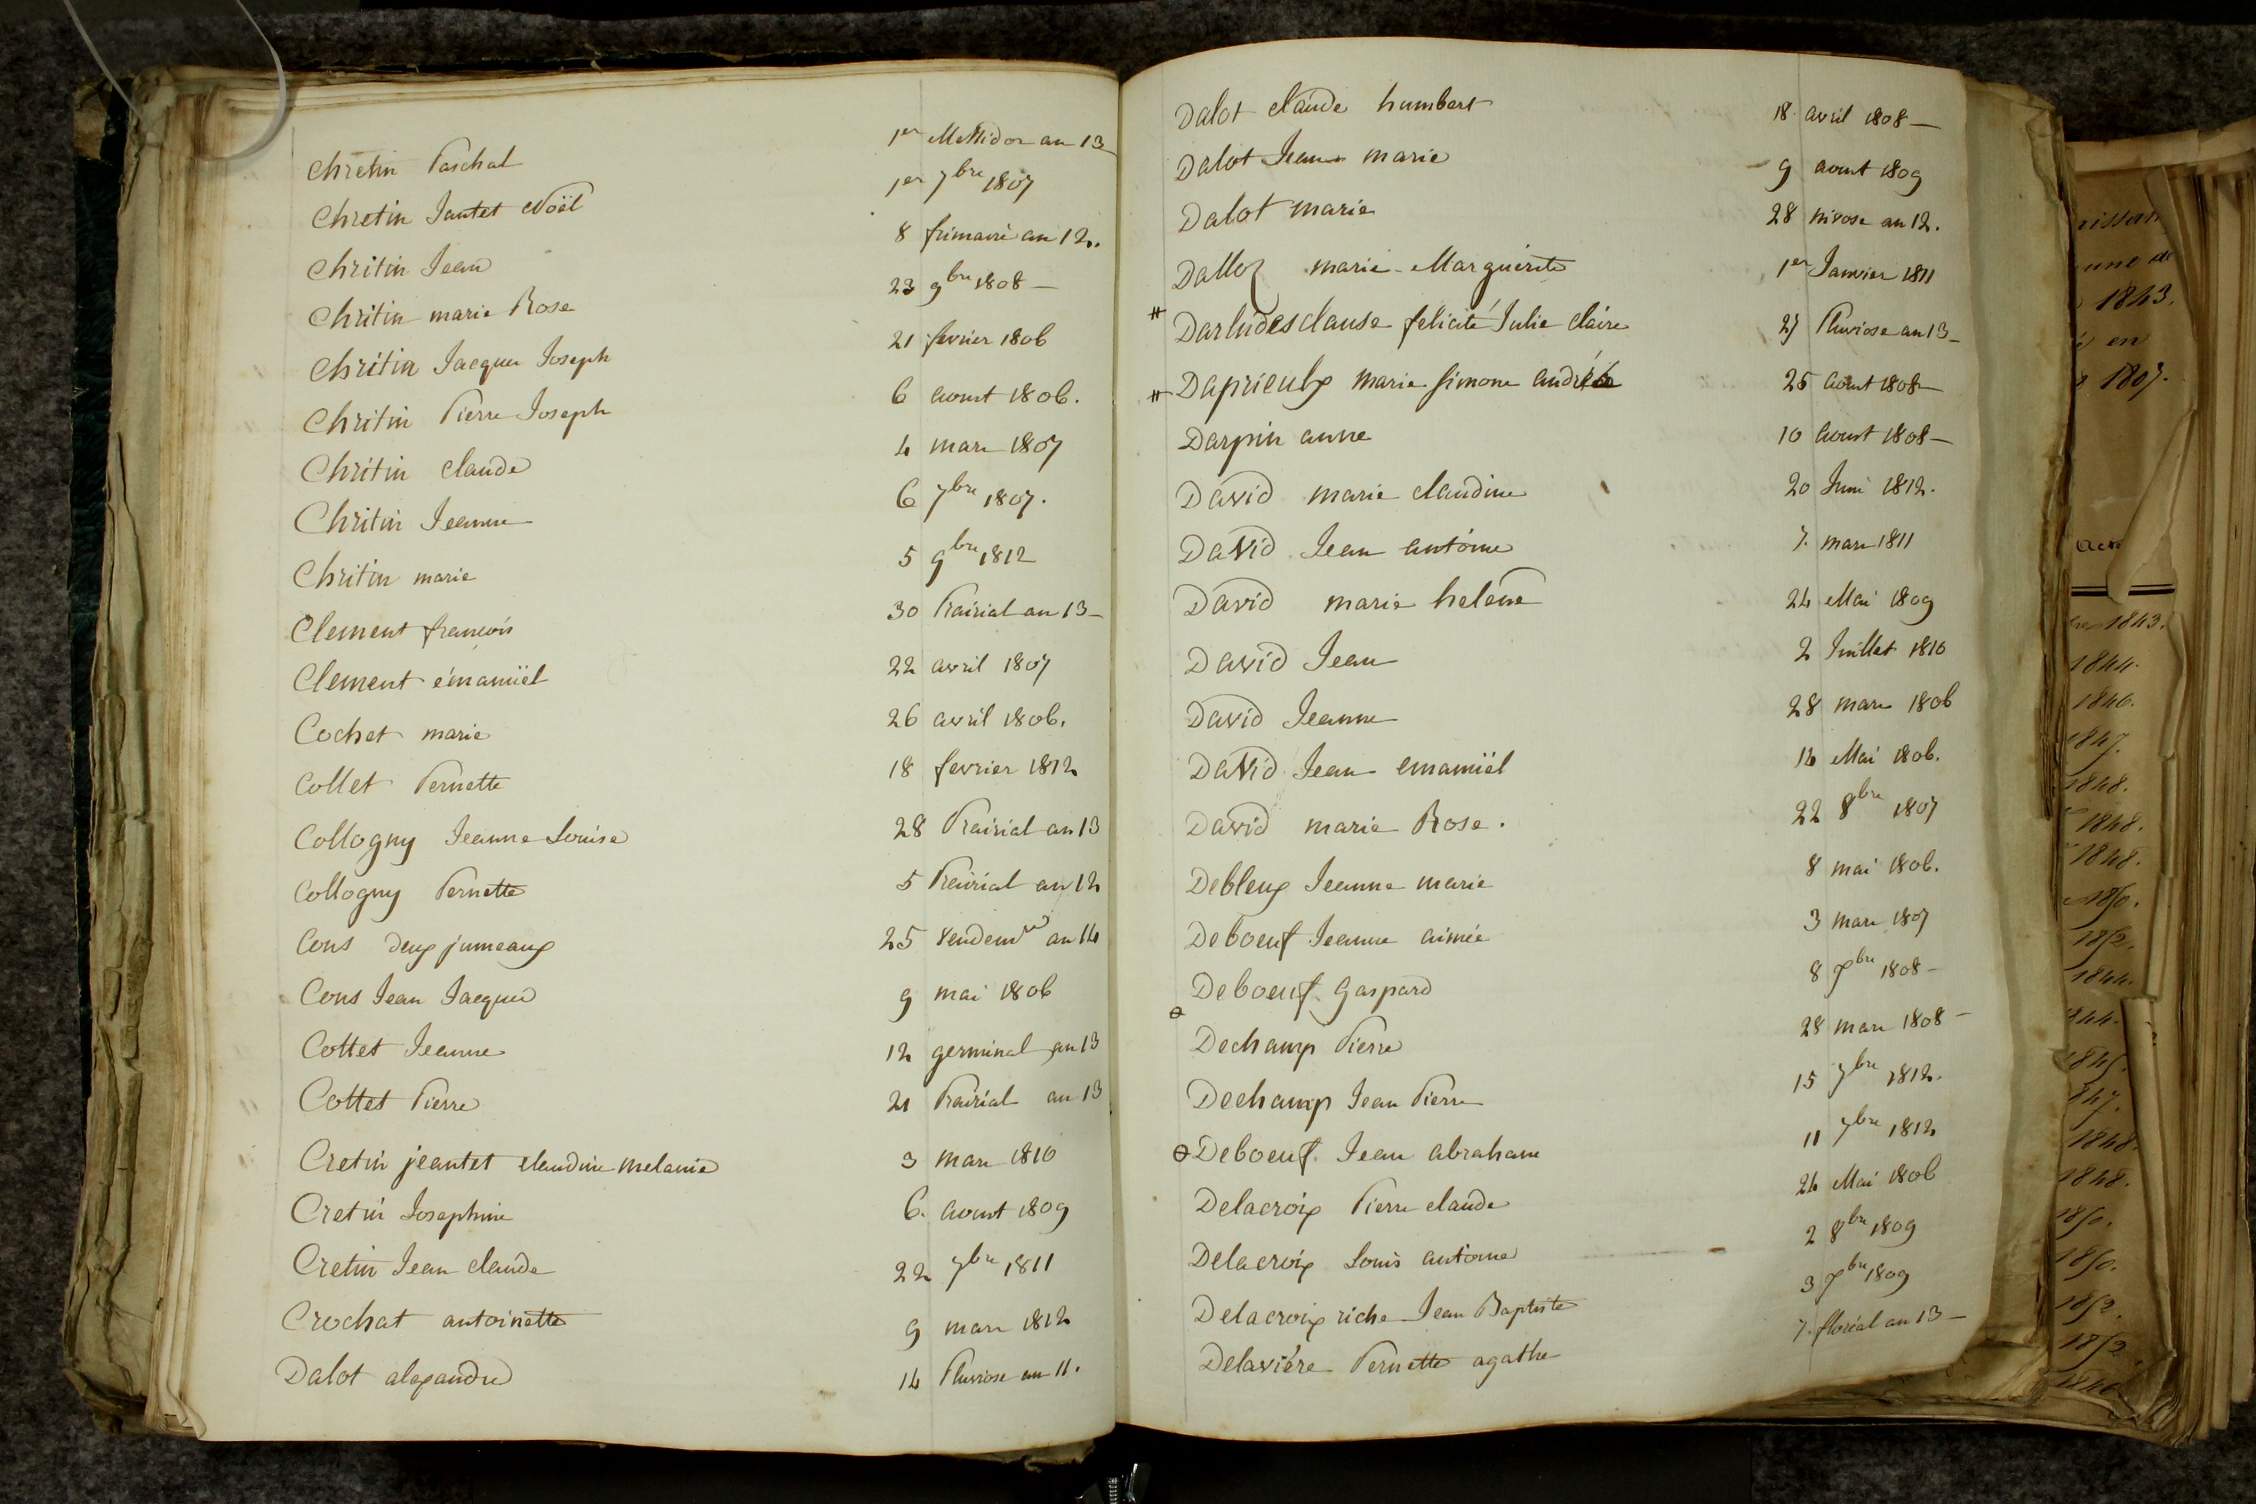 Chretin Paschal 1er Messidor an 13
Chretin Jantet Noël 1er 7bre 1807
Chritin Jean 8 frimaire an 12.
Chritin marie Rose 23 9bre 1808 –
Chritin Jacques Joseph 21 fevrier 1806
Chritin Pierre Joseph 6 aoust 1806.
Chritin claude 4 mars 1807
Chritin Jeanne 6 7bre 1807.
Chritin marie 5 9bre 1812
Clement françois 30 Prairial an 13 –
Clement émanuël 22 avril 1807
Cochet marie 26 avril 1806.
Collet Pernette 18 fevrier 1812
Collogny Jeanne Louise 28 Prairial an 13
Collogny Pernette 5 Prairial an 12
Cons deux jumeaux 25 vendemre an 14
Cons Jean Jacques 9 mai 1806
Cottet Jeanne 12 germinal an 13
Cottet Pierre 21 Prairial an 13
Cretin jeantet claudine melanie 3 mars 1810
Cretin Josephine 6. aoust 1809
Cretin Jean claude 22 7bre 1811
Crochat antoinette 9 mars 1812
Dalot alexandre 14 Pluviose an 11.
Dalot claude humbert 18 avril 1808 –
Dalot Jean marie 9 aoust 1809
Dalot marie 28 nivose an 12.
Dalloz marie Marguerite 1er Janvier 1811
# Darludesclause felicité Julie claire 27 Pluviose an 13 –
# Daprieulx marie simone andrée 25 aoust 1808 –
Darpin anne 10 aoust 1808 –
David marie claudine 20 Juin 1812.
David Jean antoine 7. mars 1811
David marie helene 24 Mai 1809
David Jean 2 Juillet 1810
David Jeanne 28 mars 1806
David Jean emanuël 14 Mai 1806.
David marie Rose. 22 8bre 1807
Debleux Jeanne marie 8 mai 1806.
Deboeuf Jeanne aimée 3 mars 1807
Deboeuf Gaspard 8 xbre 1808 –
Dechamp Pierre 28 mars 1808 –
Dechamp Jean Pierre 15 7bre 1812.
Deboeuf Jean abraham 11 7bre 1812
Delacroix Pierre claude 24 Mai 1806
Delacroix Louis antoine 2 8bre 1809
Delacroix riche Jean Baptiste 3 xbre 1809
Delaviére Pernette agathe 7. floréal an 13 –
1843.
en
1807.
1843.
1844.
1846.
1847.
1848.
1848.
1848.